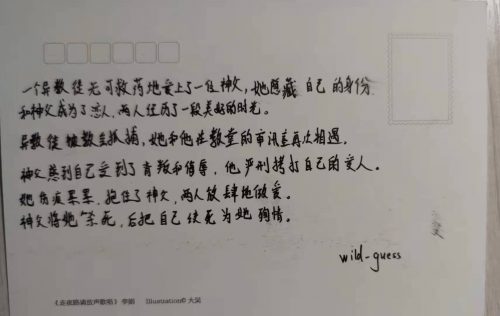 一个异教徒无可救药地爱上了一位神父，她隐藏自己的身份
和神父成为了恋人，两人经历了一段美好的时光。
异教徒被教会抓捕，她和他在教堂的审讯室再次相遇，
神父感到自己受到了背叛和侮辱，他严刑拷打自己的爱人。
她伤痕累累，抱住了神父，两人放肆地做爱。
神父将她杀死，后把自己绞死为她殉情。
wild-guess
《走夜路请放声歌唱》 李娟 Illustration© 大吴